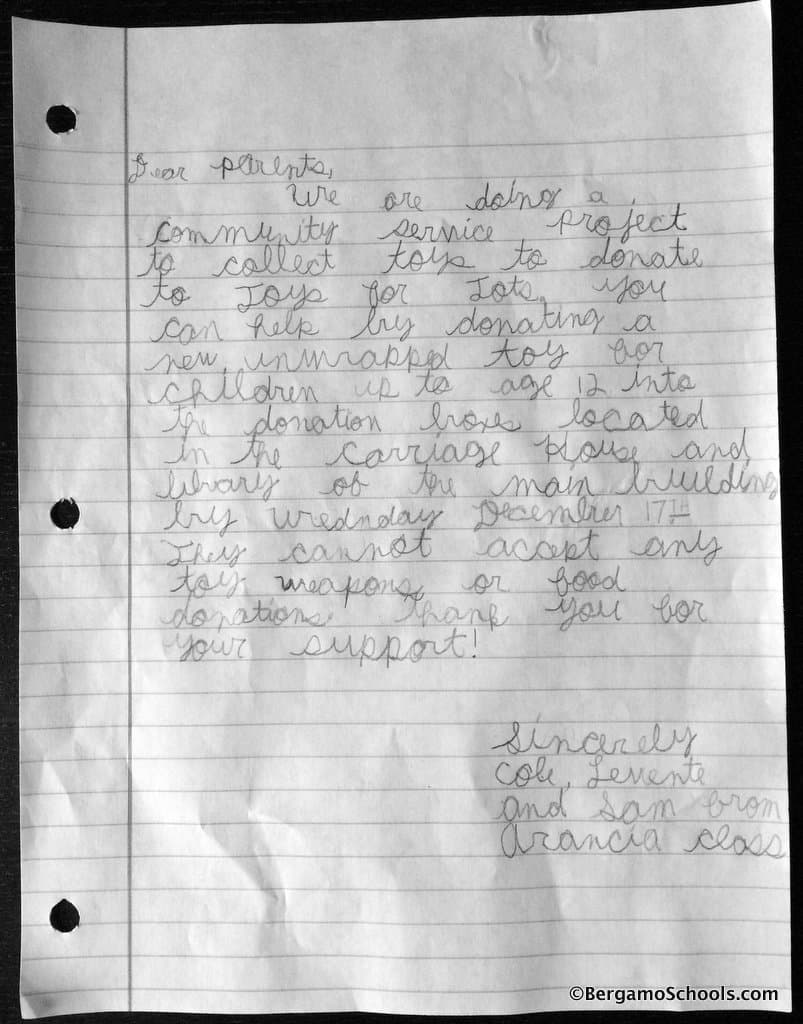 Dear parents,
We are doing a
community service project
to collect toys to donate
to Toys for Tots. You
can help by donating a
new, unwrapped toy for
children up to age 12 into
the donation boxes located
in the Carriage House and
library of the main building
by Wednday December 17th
They cannot accept any
toy weapons or food
donations. Thank you for
your support!
Sincerely
Cole, Levente
and Sam from
Arancia class
©BergamoSchools.com